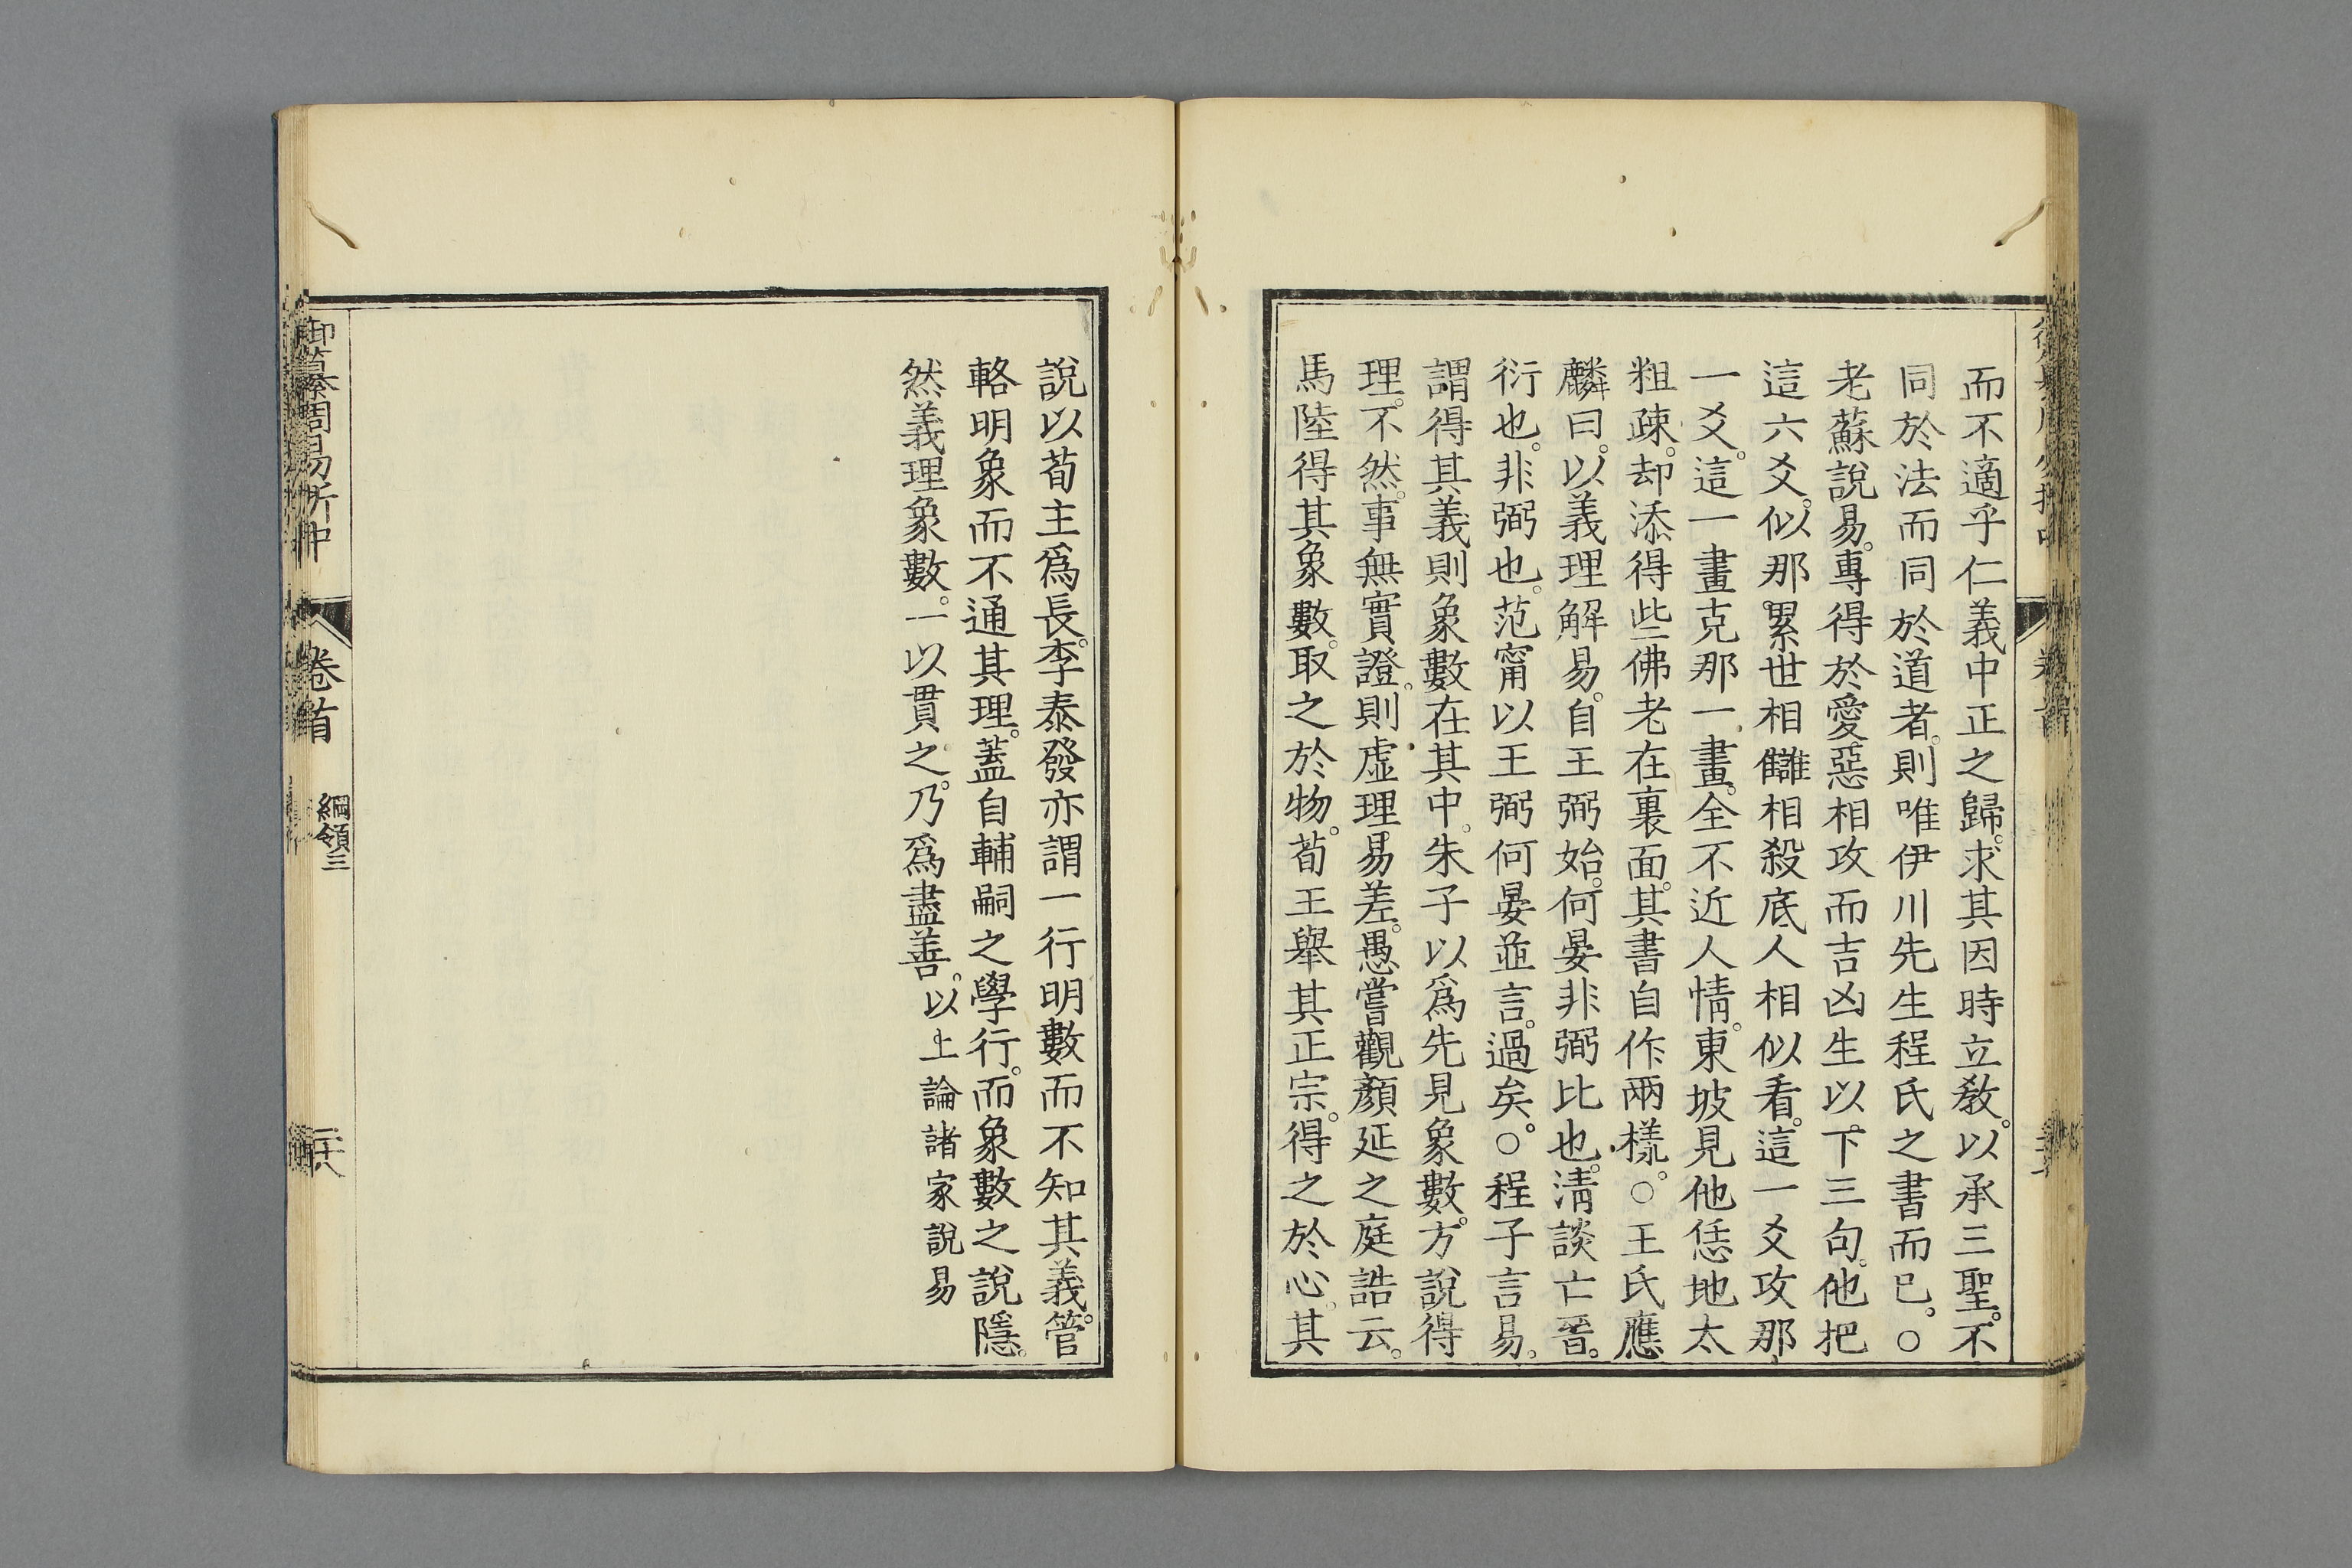 而不適乎仁義中正之歸。求其因時立敎。以承三聖。不
同於法而同於道者。則唯伊川先生程氏之書而已。○
老蘇說易。專得於愛惡相攻而吉凶生以下三句。他把
這六爻。似那累世相讎相殺底人相似看。這一爻攻那
一爻。這一畫克那一畫。全不近人情。東坡見他恁地太
粗疎。却添得些佛老在裏面。其書自作兩樣。○王氏應
麟曰。以義理解易。自王弼始。何晏非弼比也。淸談亡晉。
衍也。非弼也。范甯以王弼何晏並言。過矣。○程子言易。
謂得其義則象數在其中。朱子以爲先見象數。方說得
理。不然。事無實證。則虛理易差。愚嘗觀顏延之庭誥云。
馬陸得其象數。取之於物。荀王舉其正宗。得之於心。其
說以荀王爲長。李泰發亦謂一行明數而不知其義。管
輅明象而不通其理。蓋自輔嗣之學行。而象數之說隱。
然義理象數。一以貫之。乃爲盡善。以上論諸家說易
御纂周易折中
卷首
綱領三
二十八